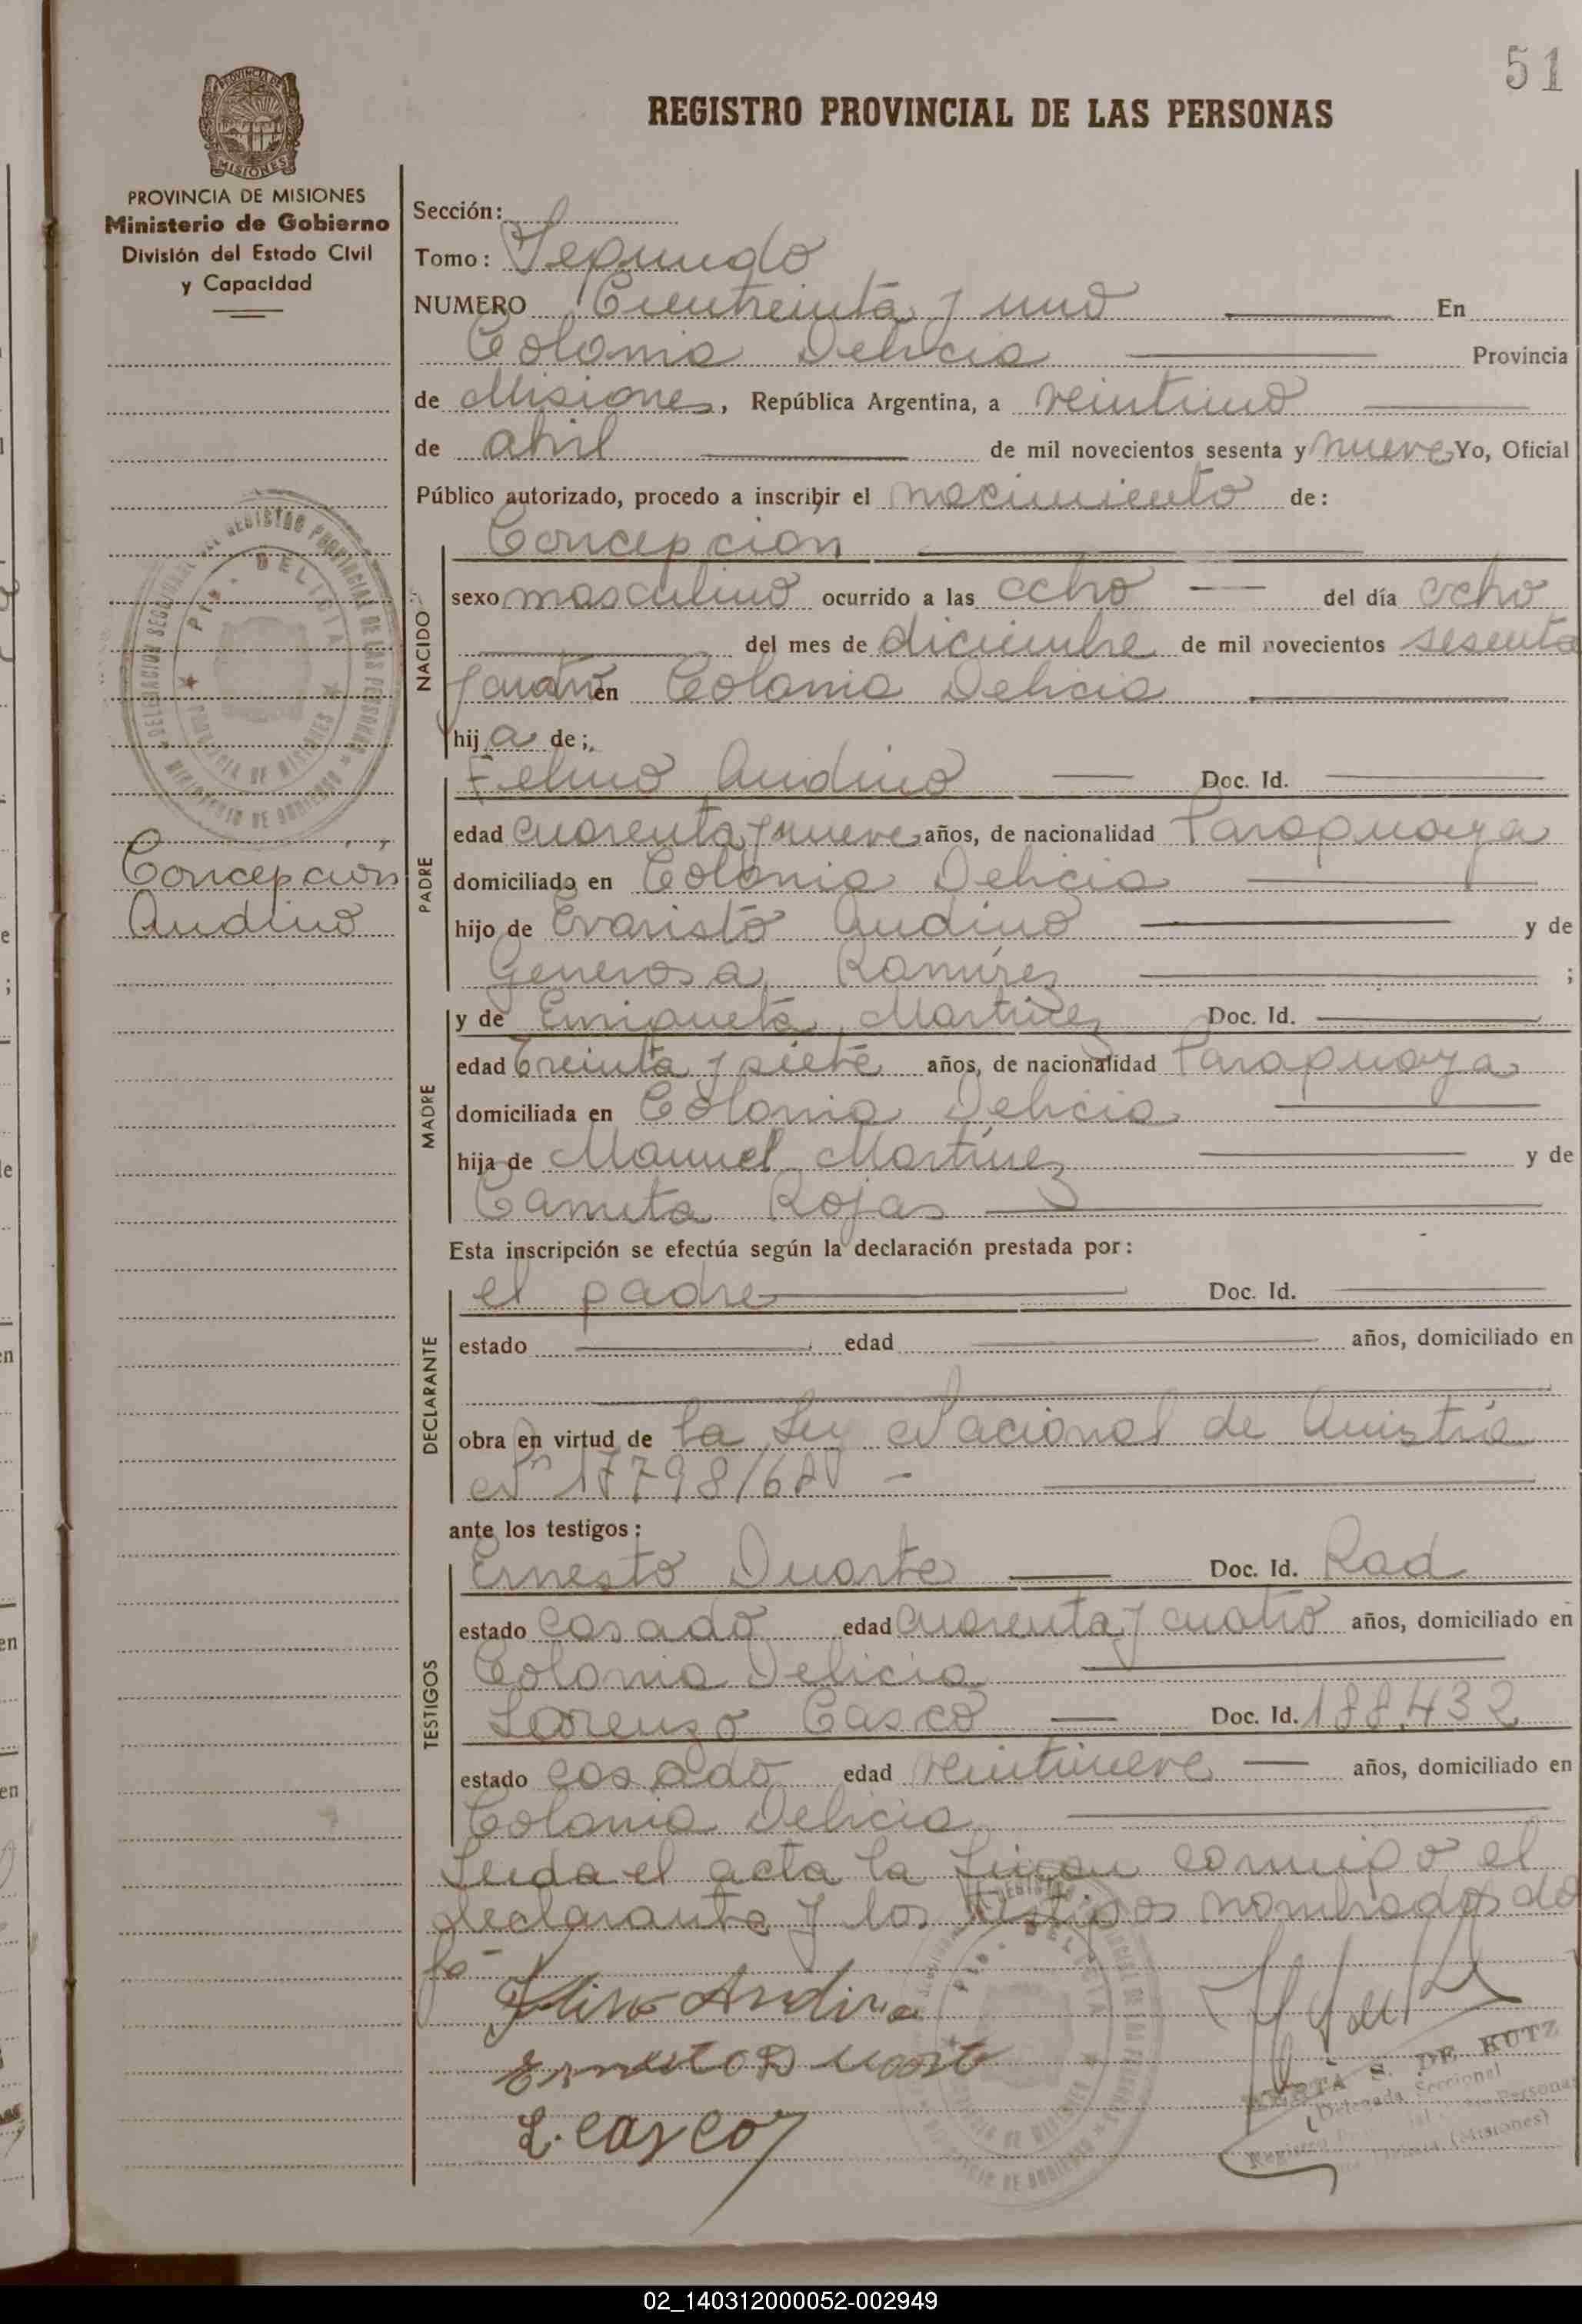 51
REGISTRO PROVINCIAL DE LAS PERSONAS
PROVINCIA DE MISIONES
Ministerio de Gobierno
División del Estado Civil
y Capacidad
Sección:
Tomo: Segundo
NUMERO Cientreinta y uno En
Colonia Delicia Provincia
de Misiones, República Argentina, a veintiuno
de abril de mil novecientos sesenta y nueve Yo, Oficial
Público autorizado, procedo a inscribir el nacimiento de:
Concepcion
NACIDO
sexo masculino ocurrido a las ocho del día ocho
del mes de diciembre de mil novecientos sesenta
y cuatro en Colonia Delicia
hija de;
PADRE
Felino Andino Doc. Id.
edad cuarenta y nueve años, de nacionalidad Paraguaya
domiciliado en Colonia Delicia
Concepción
Andino
hijo de Evaristo Andino y de
Generosa Ramírez ;
MADRE
y de Enriqueta Martínez Doc. Id.
edad treinta y siete años, de nacionalidad Paraguaya
domiciliada en Colonia Delicia
hija de Manuel Martínez y de
Rojas
Esta inscripción se efectúa según la declaración prestada por:
DECLARANTE
el padre Doc. Id.
estado edad años, domiciliado en
obra en virtud de la Ley Nacional de Amistía
Nº 17798/68 -
ante los testigos:
TESTIGOS
Ernesto Duarte Doc. Id. Rad
estado casado edad cuarenta y cuatro años, domiciliado en
Colonia Delicia
Lorenzo Casco Doc. Id. 188.432
estado casado edad veintinueve años, domiciliado en
Colonia Delicia
Leida el acta la firman conmigo el
declarante y los testigos nombrados do
fé
Felino Andino
Ernesto Duarte
L. Casco
BERTA S. DE KUTZ
Delegada Seccional
(Misiones)
02_140312000052-002949